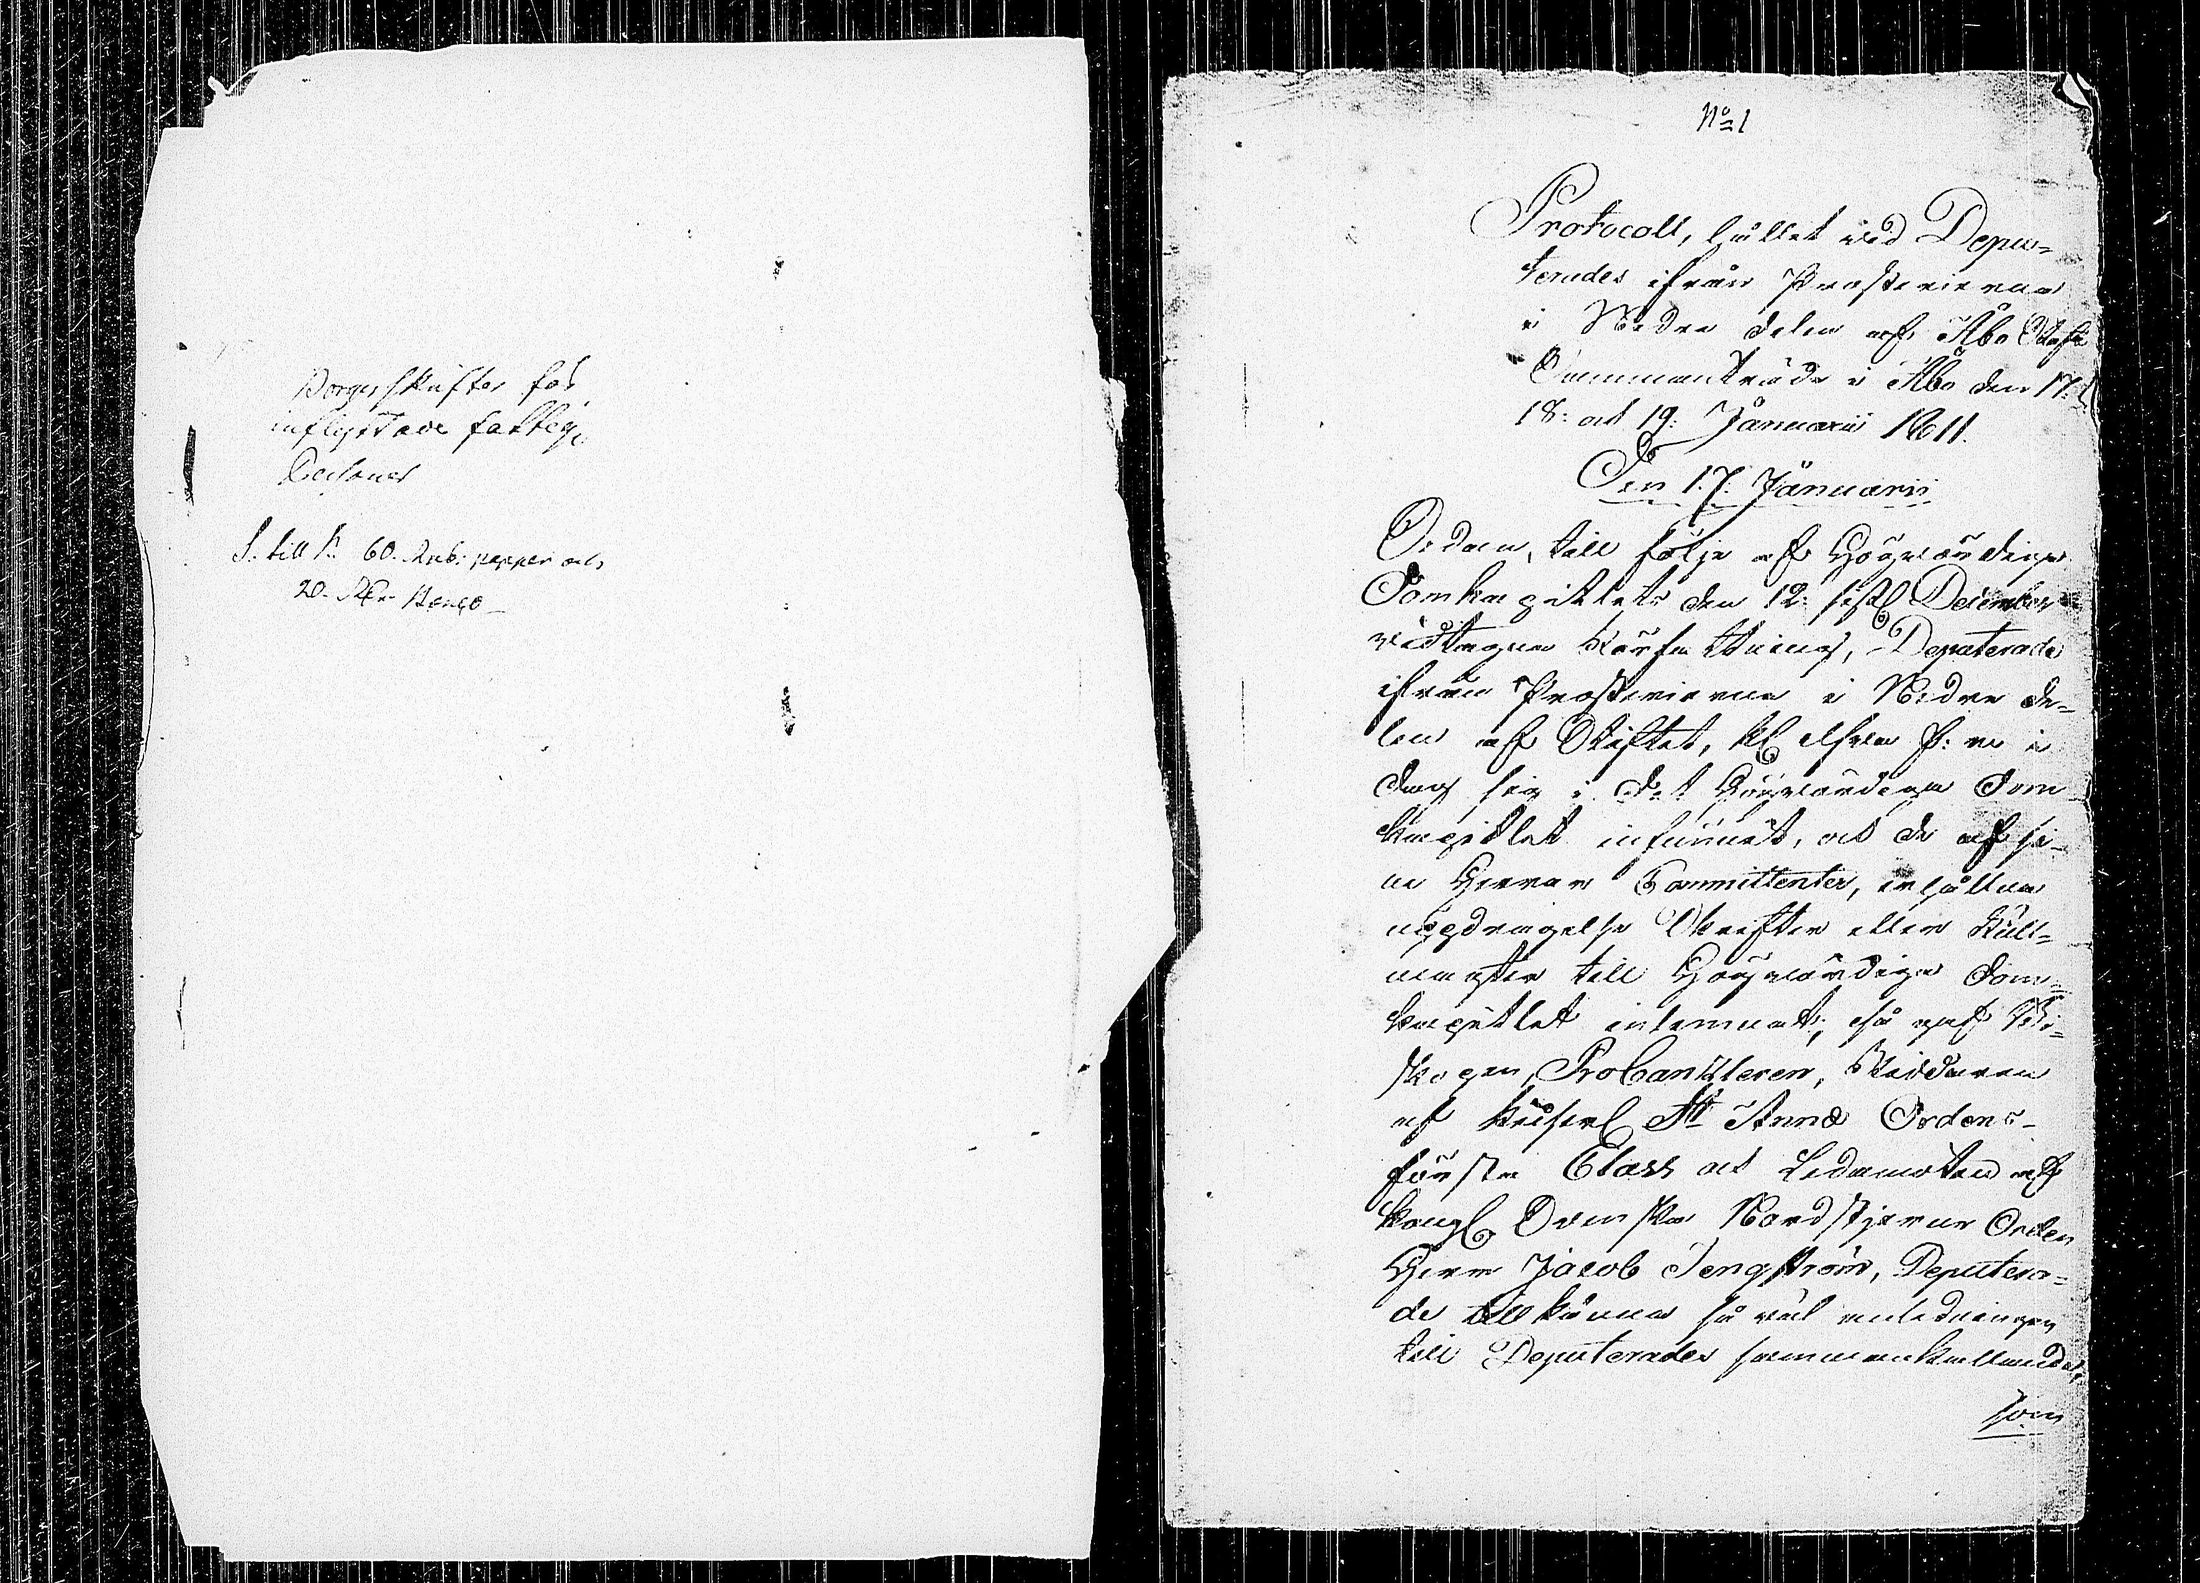 Borgesskrifter för
inflyttade fattige
Personer
S. till S. 60. Rub: papper och
20. Kop.
No 1
Protocoll, hållet vid Depu-
terades ifrån Prosterierna
i Nedre delen af Åbo Stift
Sammanträde i Åbo den 17:
18: och 19: Januarii 1811.
Den 17. Januarii
Sedan, till följe af Högvördiga
Domkapitlets den 12: sistl. December
vidtagna författning, Deputerade
ifrån Prosterierna i Nedre de-
len af Stiftet, kl. elfva f: m i
dag sig i det Högvördiga Dom-
kapitlet infunnit, och de af si-
ne Herrar Committenter, erhållna
uppdragelse Skrifter eller Full-
magter till Högvördiga Dom-
kapitlet inlemnat; så gaf Bi-
skopen, ProCancleren, Riddaren
af Keiserl. St Annæ Ordens
första Class och Ledamoten af
Kongl. Svenska Nordstjerne Orden
Herr Jacob Tengström, Deputera-
de tillkänna så väl anledningen
till Deputerades sammankallande,
som